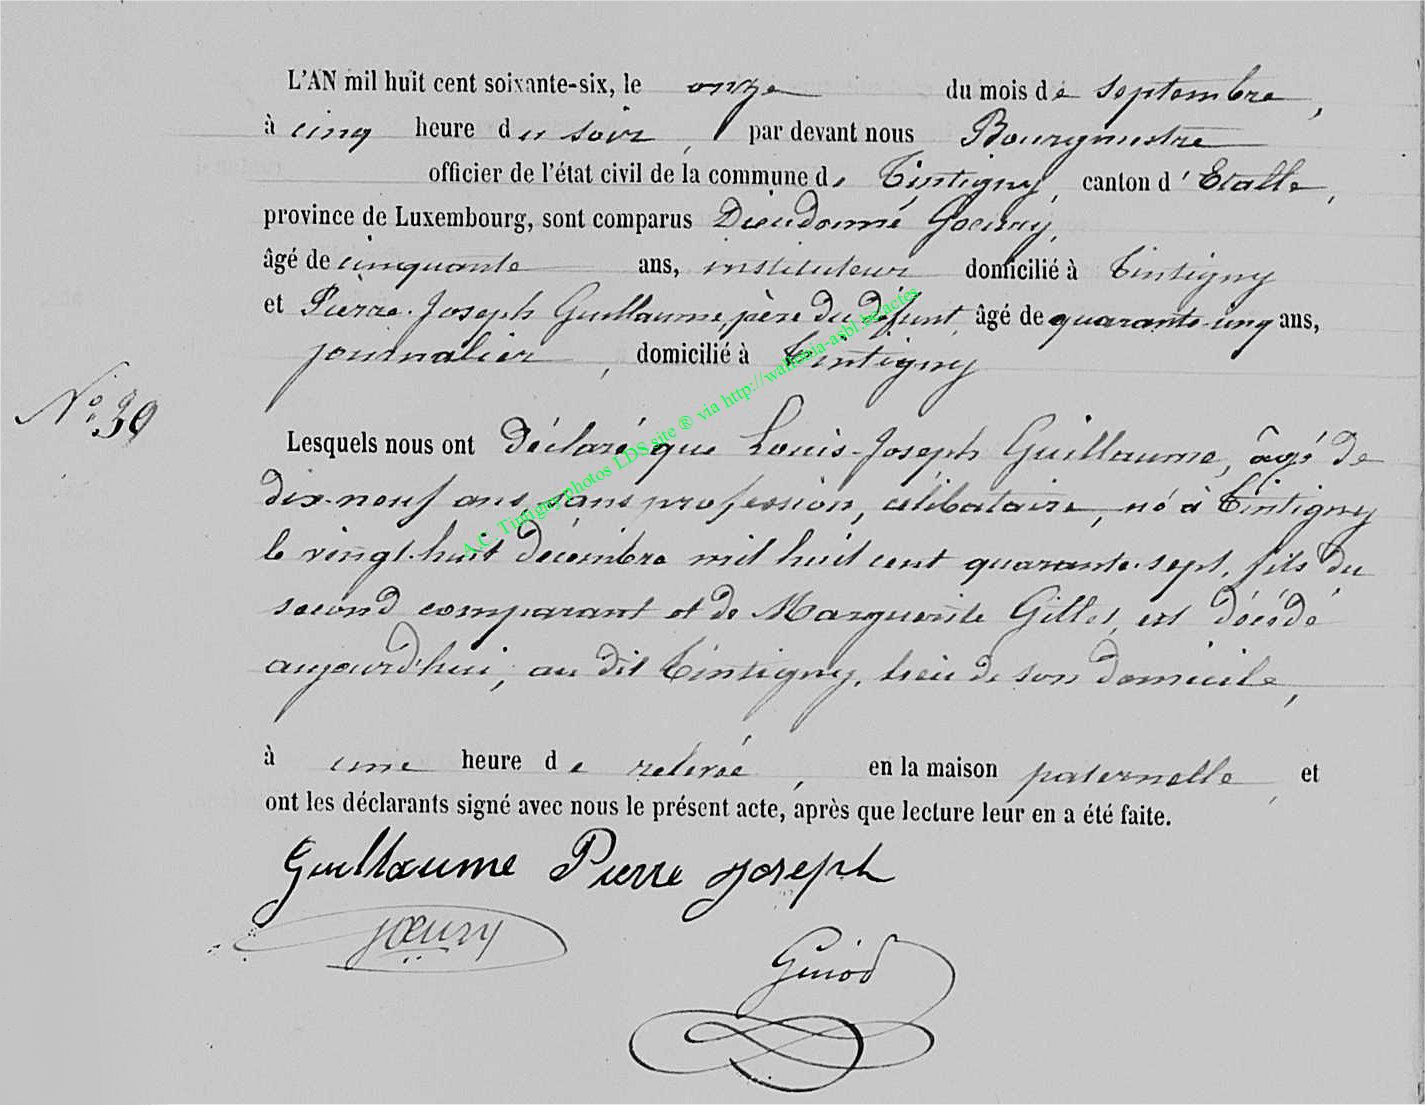 L'AN mil huit cent soixante-six, le onze du mois de septembre,
à cinq heure du soir, par devant nous Bourgmestre
officier de l'état civil de la commune de Tintigny, canton d'Etalle,
province de Luxembourg, sont comparus Dieudonné Goeury,
âgé de cinquante ans, instituteur domicilié à Tintigny
et Pierre-Joseph Guillaume, père du défunt, âgé de quarante-cinq ans,
journalier, domicilié à Tintigny
No. 39
Lesquels nous ont déclaré que Louis-Joseph Guillaume, âgé de
dix-neuf ans, sans profession, célibataire, né à Tintigny
le vingt-huit décembre mil huit cent quarante-sept, fils du
second comparant et de Marguerite Gilles, est décédé
aujourd'hui, au dit Tintigny, lieu de son domicile,
à une heure de relevée, en la maison paternelle, et
ont les déclarants signé avec nous le présent acte, après que lecture leur en a été faite.
Guillaume Pierre joseph
goeury
Guiod
A.C. Tintigny photos LDS site ® via http://wallonia-asbl.be/actes